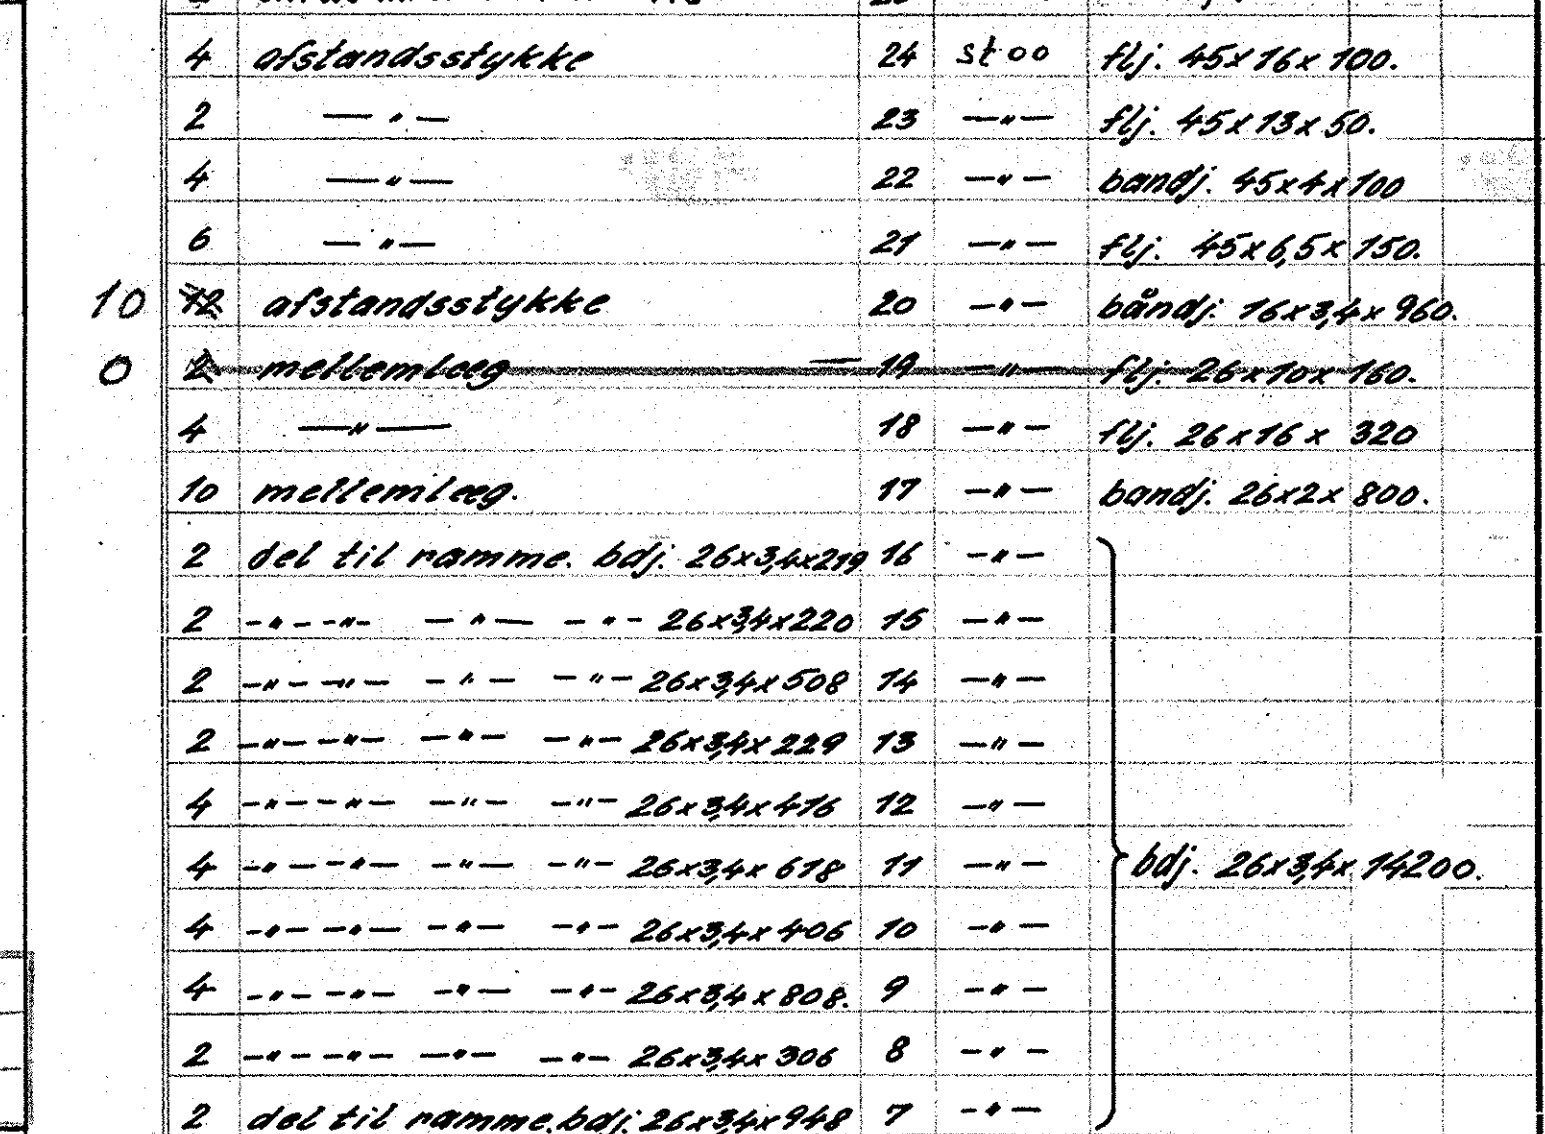 4 afstandsstykke 24 st 00 flj. 45x16x100.
2 — " — 23 — " — flj. 45x13x50.
4 — " — 22 — " — bandj. 45x4x100
6 — " — 21 — " — flj. 45x6,5x150.
10 12 afstandsstykke 20 — " — båndj. 16x3,4x960.
0 2 mellemlæg 19 — " — flj. 26x10x160.
4 — " — 18 — " — flj. 26x16x 320
10 mellemlæg. 17 — " — bandj. 26x2x 800.
2 del til ramme. bdj. 26x3,4x219 16 — " —
2 - " - - " - — " — - " - 26x3,4x220 15 — " —
2 - " - - " - - " - - " - 26x3,4x508 14 — " —
2 - " - - " - - " - - " - 26x3,4x229 13 — " —
4 - " - - " - - " - - " - 26x3,4x416 12 — " —
4 - " - - " - - " - - " - 26x3,4x618 11 — " — bdj. 26x3,4x14200.
4 - " - - " - - " - - " - 26x3,4x406 10 — " —
4 - " - - " - - " - - " - 26x3,4x808. 9 — " —
2 - " - - " - - " - - " - 26x3,4x306 8 — " —
2 del til ramme. bdj. 26x3,4x948 7 — " —